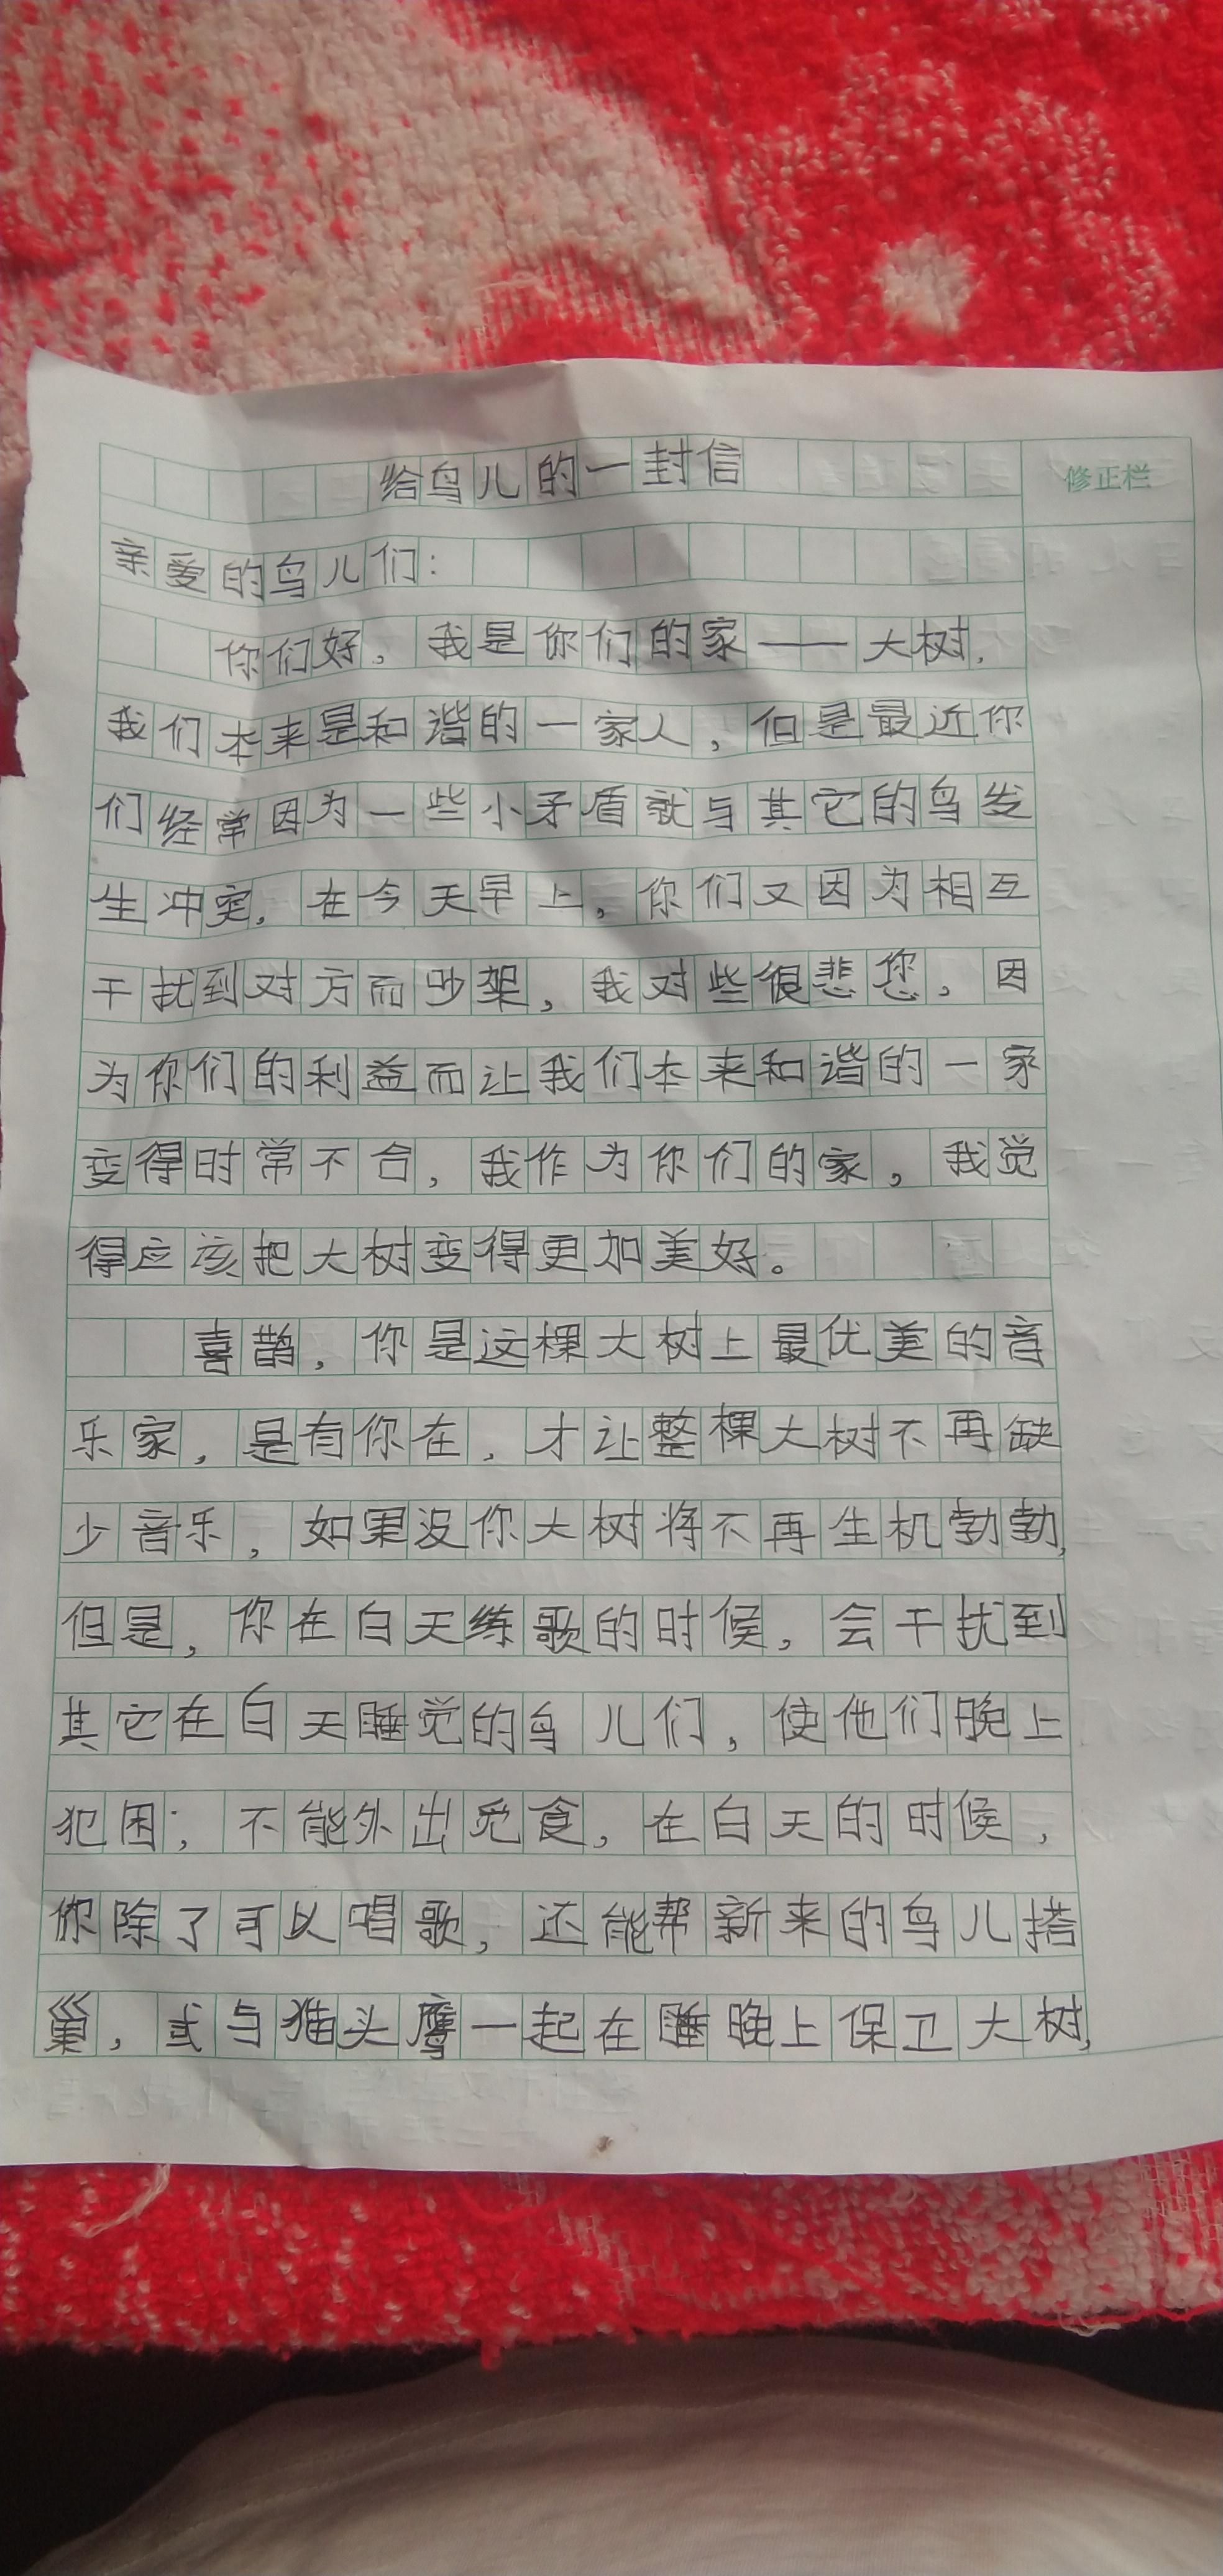 给鸟儿的一封信
修正栏
亲爱的鸟儿们：
你们好，我是你们的家——大树，
我们本来是和谐的一家人，但是最近你
们经常因为一些小矛盾就与其它的鸟发
生冲突，在今天早上，你们又因为相互
干扰到对方而吵架，我对些很悲您，因
为你们的利益而让我们本来和谐的一家
变得时常不合，我作为你们的家，我觉
得应该把大树变得更加美好。
喜鹊，你是这棵大树上最优美的音
乐家，是有你在，才让整棵大树不再缺
少音乐，如果没你大树将不再生机勃勃，
但是，你在白天练歌的时候，会干扰到
其它在白天睡觉的鸟儿们，使他们晚上
犯困；不能外出觅食，在白天的时候，
你除了可以唱歌，还能帮新来的鸟儿搭
巢，或与猫头鹰一起在晚上保卫大树，